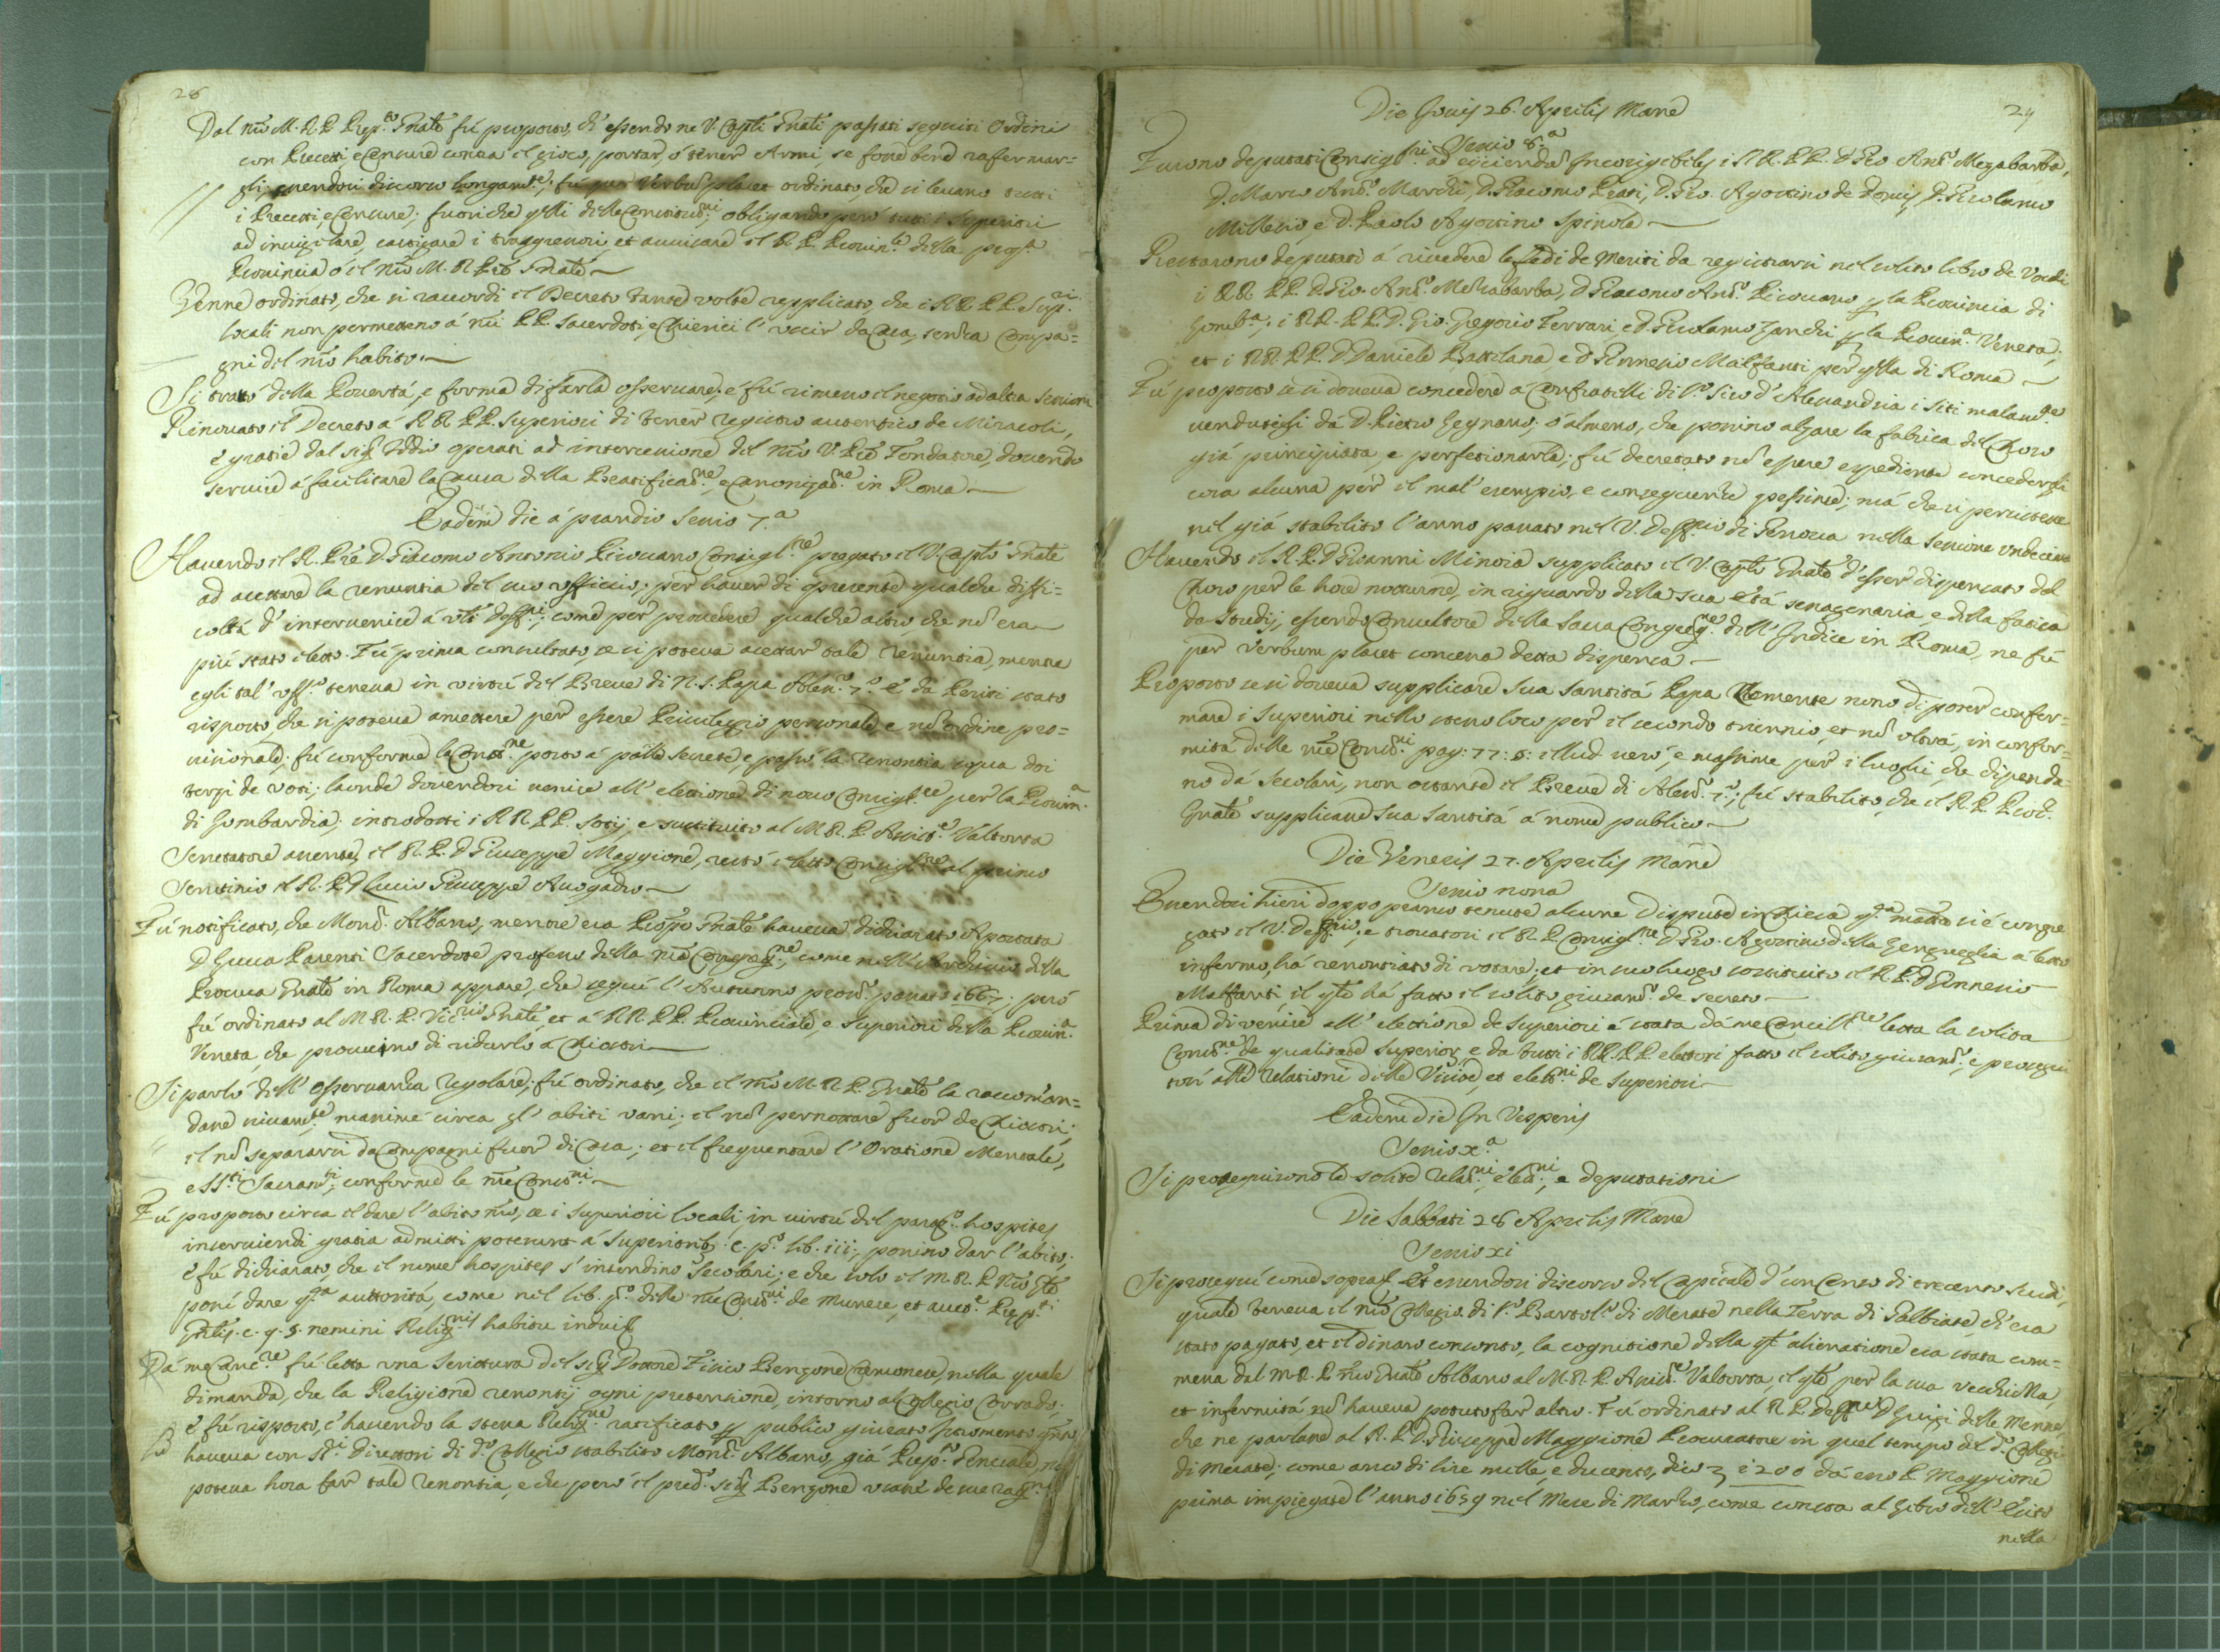 28
Dal nro M. R. P. Prep.to Gnale fù proposto, ch'essendo ne V. Capti Gnali passati seguiti Ordini
con Precetti e Censure contra il gioco, portar, ò tener Armi, se fosse bene rafermar=
gli; essendosi discorso longamte; fù per verbum placet ordinato, che si levano tutti
i Precetti, e Censure; fuori che qlli delle Constituni; obligando però tutti i Superiori
ad invigilare, castigare i trasgressori, et avvisare il R. P. Provinle della prop.a
Provincia ò il nro M. R. Pre Gnale
Venne ordinato, che si raccordi il Decreto tante volte repplicato, che i RR. PP. Supri
locali non permettano á nri PP. Sacerdoti, e Chierici l'uscir da Casa, senza Compa=
gni del nro habito.
Si trattò della Povertá, e forma di farla osservare; e fù rimesso il negotio ad altra sessione
Rinovato il Decreto á RR. PP. Superiori di tener registro autentico de Miracoli,
e gratie dal sig. Iddio operati ad intercessione del nro V. Pre Fondatore, dovendo
servire á facilitare la Causa della Beatificane, e Canonizane in Roma
Eadem die á prandio Sessio 7.a
Havendo il R. Pre D. Giacomo Antonio Picovano Consiglre pregato il V. Capto Gnale
ad accettare la renuntia del suo officio; per haver di presente qualche diffi=
coltá d'intervenire á nri Deffni; come per provedere qualche altro, che nõ era
più stato eletto. Fù prima consultato, se si poteva accettar tale renuntia, mentre
egli tal' uff.o teneva in virtù del Breve di N. S. Papa Alessro 7.o E da Periti stato
risposto, che si poteva amettere per essere Privileggio personale, e nõ ordine pro=
visionale; fù conforme la Constne posto á palle secrete, e passò la renontia sopra doi
terzi de voti; laonde dovendosi venire all' elettione di novo Consiglre per la Provin.a
di Lombardia; introdotti i RR. PP. Socij, e sustituito al M. R. P. Assist.e Valtorta
Scrutatore assente il R. P. D Giuseppe Maggione, restò eletto Consiglre al primo
Scrutinio il R. P. D Lucio Giuseppe Avogadro
Fù notificato, che Monsr Albano, mentre era Prepto Gnale haveva dichiarato Apostata
D Luca Parenti Sacerdote professo della nra Congregne, come nell' Archivio della
Procura Gnale in Roma appare, che seguì l'Autunno pross.o passato 1667; però
fù ordinato al M. R. P. Vicrio Gnale, et á RR. PP. Provinciale, e Superiori della Provin.a
Veneta, che procurino di ridurlo á Chiostri
Si parlò dell' osservanza regolare; fù ordinato, che il nro M. R. P. Gnale la raccoman=
dasse vivamte, massime circa gl' abiti vani; il nõ pernottare fuor de Chiostri;
il nõ separarsi da Compagni fuor di Casa; et il frequentare l'Oratione Mentale,
e SSti Sacramti, conforme le nre Constni
Fù proposto circa il dare l'abito nro, se i Superiori locali in virtù del parag.o hospites
inserviendi gratia admitti poterunt á Superiorib. c. p.o lib. iii; possino dar l'abito;
e fù dichiarato, che il nome hospites s'intendino Secolari; e che solo il M. R. P. Nro Gnle
possi dare qta auttoritá, come nel lib. p.o delle nre Constni de munere, et auct.e Prepti
Gnlis. c. 9. §. nemini Religionis habitu induit
Da me Cancre fù letta una Scrittura del sig. Dottore Tirso Benzone Cremonese, nella quale
dimanda, che la Religione renontij ogni pretensione, intorno al Collegio Corrado;
e fù risposto, c'havendo la stessa Religne ratificato per publico giurato Istromento qto
haveva con Sri Direttori di do Collegio stabilito Monsr Albano, già Prepto Generale, nõ
poteva hora far tale renontia, e che però il predo sig. Benzone usasse de sue ragni
29
Die Jovis 26. Aprilis Mane
Sessio 8.a
Furono deputati Consiglri ad eijciendos Incorrigibiles i RR. PP. D Gio Anto Mezabarba,
D. Marco Anto Marchi, D. Giacomo Prati, D. Gio. Agostino de Domis, D. Girolamo
Millesio, e D. Paolo Agostino Spinola
Restarono deputati á rivedere le fedi de meriti da registrarsi nel solito libro de Vocali
i RR. PP. D Gio. Anto Mezabarba, D Giacomo Anto Picovano per la Provincia di
Lomb.a; i RR. PP. D. Gio. Gregorio Ferrari e D. Girolamo Zanchi per la Provin.a Veneta;
et i RR. PP. D Daniele Battilana, e D Ginnesio Malfanti per qlla di Roma
Fù proposto se si doveva concedere á Confratelli di So Siro d'Alessandria i siti malamte
vendutigli dá D. Pietro Gegnano; ò almeno, che possino alzare la fabrica del Choro
giá principiata, e perfetionarla; fù decretato nõ essere espediente concedergli
cosa alcuna per il mal' esempio, e conseguenze pessime; má che si persistesse
nel giá stabilito l'anno passato nel V. Deffrio di Genova nella sessione undecima
Havendo il R. P. D Giovanni Minoia supplicato il V. Capto Gnale d'esser dispensato dal
Choro per le hore notturne, in riguardo della sua etá senagenaria, e della fatica
da studij, essendo Consultore della Sacra Congregne dell' Indice in Roma, ne fù
per verbum placet concessa detta dispensa
Proposto se si doveva supplicare Sua Santitá Papa Clemente nono di poter confer=
mare i Superiori nello stesso loco per il secondo triennio, et nõ oltrá, in confor=
mitá delle nre Constni pag: 77: §: illud verò, e massime per i luoghi, che dipenda
no dá Secolari, non ostante il Breve di Alesso 7.o; fù stabilito, che il R. P. Procr
Gnale supplicasse Sua Santitá á nome publico
Die Veneris 27. Aprilis Mane
Sessio nona
Essendosi hieri doppo pranso tenute alcune Dispute in Chiesa qta mattina si è congre
gato il V. Deffrio, e trovatosi il R. P. Consiglre D Gio. Agostino della Lengueglia á letto
infermo, há renontiato di votare; et in suo luogo sostituito il R. P. D Ginnesio
Malfanti, il qle há fatto il solito giuramto de secreto
Prima di venire all' elettione de Superiori é stata dá me Cancellre letta la solita
Constne de qualitate Superior, e da tutti i RR. PP. elettori fatto il solito giuramto, e prosegui
tosi alle relationi delle Visite, et eletni de Superiori
Eadem die In Vesperis
Sessio x.a
Si proseguirono le solite relatni, eletni, e deputationi
Die Sabbati 28 Aprilis Mane
Sessio xi
Si proseguì come sopra. Et essendosi discorso del Capitale d'un Censo di trecento scudi,
quale teneva il nro Collegio di So Bartolo di Merate nella Terra di Galbiate, ch'era
stato pagato, et il dinaro consonto, la cognitione della qle alienatione era stata com=
messa dal M. R. P. nro Gnale Albano al M. R. P. Assiste Valtorta, il qle per la sua vecchiezza,
et infermitá nõ haveva potuto far altro. Fù ordinato al R. P. Deffre D Luigi delle Menne,
che ne parlasse al R. P. D. Giuseppe Maggione Procuratore in quel tempo del do Collegio
di Merate; come anco di lire mille e ducento, dico £ 1200 dá esso P. Maggione
prima impiegate l'anno 1659 nel Mese di Marzo, come consta al Libro dell' Esito
nella